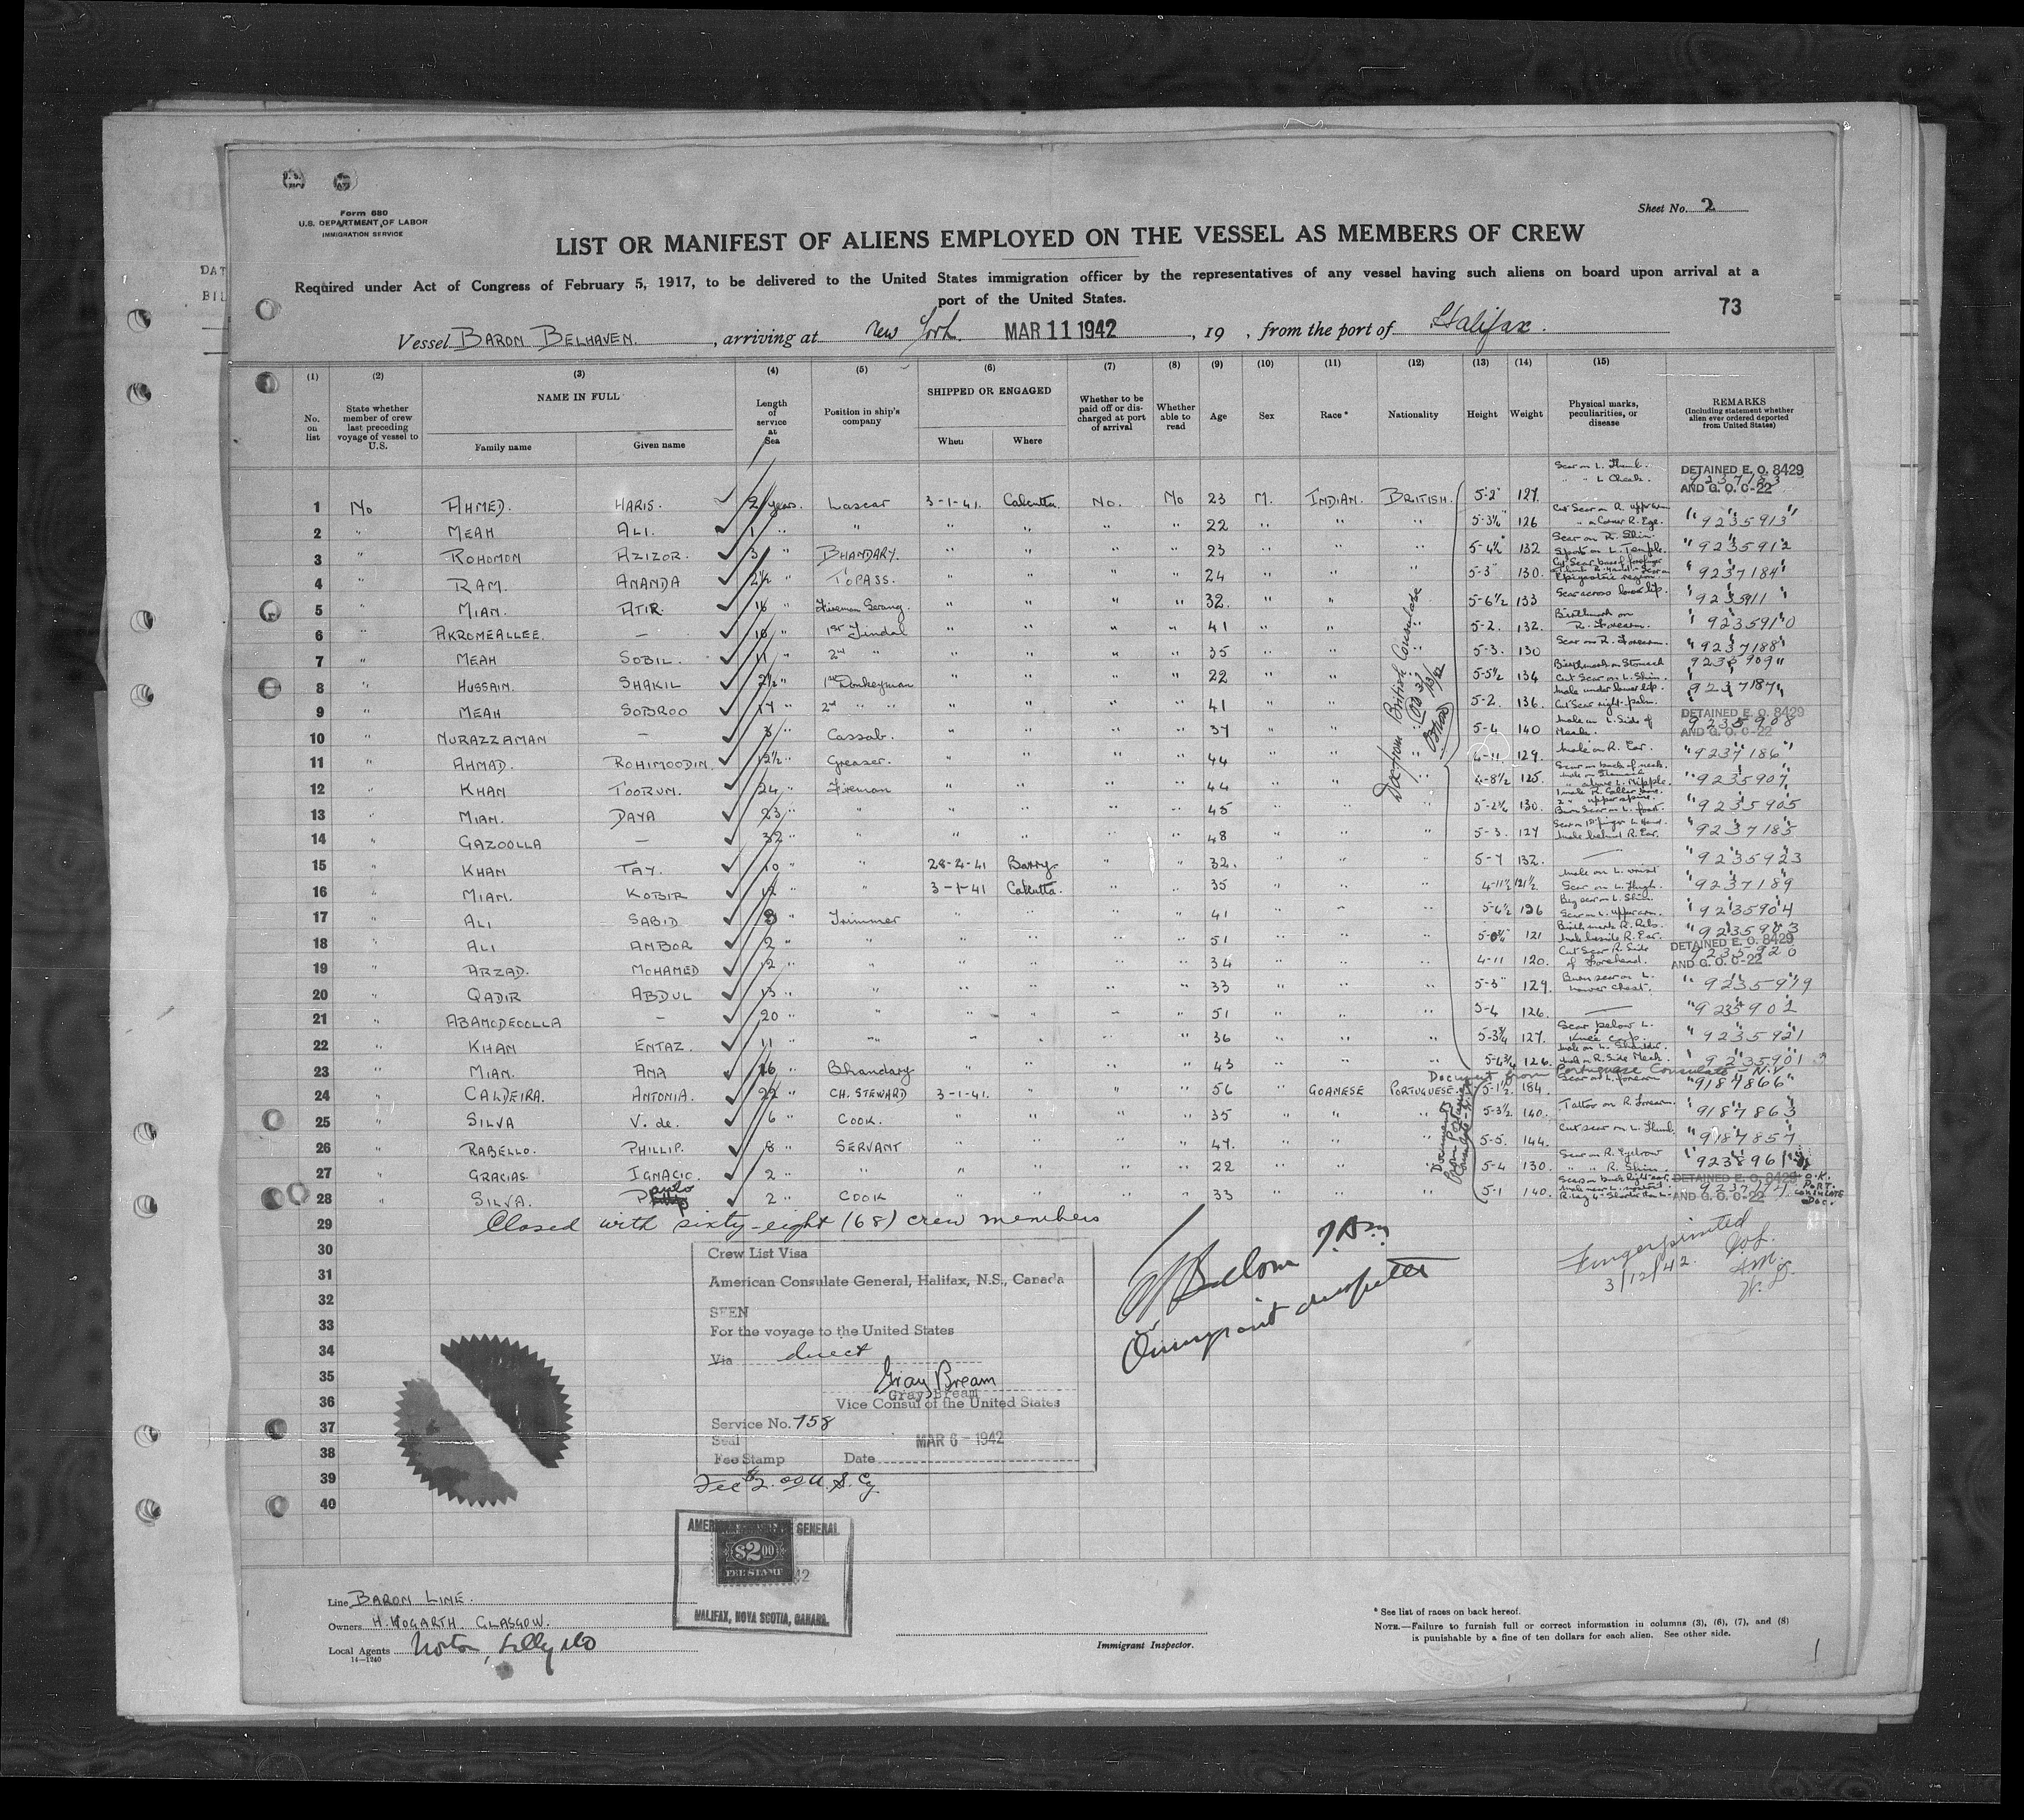 Form 680
U.S. DEPARTMENT OF LABOR
IMMIGRATION SERVICE
Sheet No. 2
LIST OR MANIFEST OF ALIENS EMPLOYED ON THE VESSEL AS MEMBERS OF CREW
Required under Act of Congress of February 5, 1917, to be delivered to the United States immigration officer by the representatives of any vessel having such aliens on board upon arrival at a
port of the United States.
73
Vessel BARON BELHAVEN. , arriving at New York. MAR 11 1942 , 19 , from the port of Halifax.
(1) (2) (3) (4) (5) (6) (7) (8) (9) (10) (11) (12) (13) (14) (15)
No. on list State whether member of crew last preceding voyage of vessel to U.S. NAME IN FULL Family name Given name Length of service at Sea Position in ship's company SHIPPED OR ENGAGED When Where Whether to be paid off or discharged at port of arrival Whether able to read Age Sex Race * Nationality Height Weight Physical marks, peculiarities, or disease REMARKS (Including statement whether alien ever ordered deported from United States)
1 No AHMED. HARIS. 2 years. Lascar 3-1-41. Calcutta. No. No 23 M. INDIAN. BRITISH. 5-2 127. Scar on L. Thumb. " " L Cheek. DETAINED E. O. 8429 AND G. O. C-22 9237183
2 " MEAH ALI. 1 " " " " " " 22 " " " 5-3¼ 126 Cut Scar on R. upper arm " " Corner R. Eye. " 9235913 "
3 " ROHOMON AZIZOR. 3 " BHANDARY. " " " " 23 " " " 5-4½ 132 Scar on R. Shin. Spot on L. Temple. " 9235912
4 " RAM. ANANDA 2½ " TOPASS. " " " " 24 " " " 5-3 130. Epigastric region. " 9237184 "
5 " MIAN. ATIR. 16 " Fireman Serang. " " " " 32. " " " 5-6½ 133 Scar across lower lip. " 9235911 "
6 " AKROMEALLEE. — 10 " 1st Tindal " " " " 41 " " " 5-2. 132. Birthmark on R. Forearm. " 9235910
7 " MEAH SOBIL. 11 " 2nd " " " " " 35 " " " 5-3. 130 Scar on R. Forearm. " 9237188 "
8 " HUSSAIN. SHAKIL 2½ " 1st Donkeyman " " " " 22 " " " 5-5½ 134 Birthmark on Stomach Cut Scar on L. Shin. 9235909 "
9 " MEAH SOBROO 17 " 2nd " " " " " 41 " " " 5-2. 136. Mole under lower lip. Cut Scar right palm. " 9237187 "
10 " NURAZZAMAN — 3 " Cassab. " " " " 37 " " " 5-4 140 Mole on L. Side of Neck. DETAINED E. O. 8429 AND G. O. C-22 9235908
11 " AHMAD. ROHIMOODIN. 12½ " Greaser. " " " " 44 " " " 4-11 129. Mole on R. Ear. " 9237186 "
12 " KHAN TOORUM. 24 " Fireman " " " " 44 " " " 4-8½ 125. Scar on back of neck. Mole on Stomach " above L. Nipple. " 9235907
13 " MIAN. DAYA 23 " " " " " " 45 " " " 5-2¼ 130. Burn Scar on L. foot. " 9235905
14 " GAZOOLLA — 32 " " " " " " 48 " " " 5-3. 127 Scar on 1st finger L. Hand. Mole behind R. Ear. " 9237185
15 " KHAN TAY. 10 " " 28-2-41 Barry " " 32. " " " 5-7 132. — " 9235923
16 " MIAN. KOBIR 12 " " 3-1-41 Calcutta. " " 35 " " " 4-11½ 121½. Mole on L. wrist Scar on L. Thigh. " 9237189
17 " ALI SABID 8 " Trimmer " " " " 41 " " " 5-4½ 136 Big scar on L. Shin. Scar on L. upper arm. " 9235904
18 " ALI AMBOR 2 " " " " " " 51 " " " 121 Birth mark R. Ribs. Mole beside R. Ear.
19 " ARZAD. MOHAMED 2 " " " " " " 34 " " " 4-11 120. Cut Scar R. Side of Forehead. DETAINED E. O. 8429 AND G. O. C-22 9235920
20 " QADIR ABDUL 13 " " " " " " 33 " " " 5-3 129. Burn scar on L. Lower Chest. " 9235919
21 " ABAMODEOOLLA — 20 " " " " " " 51 " " " 5-4 126. — " 9235902
22 " KHAN ENTAZ. 11 " " " " " " 36 " " " 5-3¾ 127. Scar below L. Knee cap. " 9235921
23 " MIAN. ANA 16 " Bhandary " " " " 43 " " " 5-4¾ 126. Mole on L. Shoulder. Mole on R. Side Neck. " 9235901
Document from Portuguese Consulate - N.Y
24 " CALDEIRA. ANTONIA. 22 " CH. STEWARD 3-1-41. " " 56 " GOANESE PORTUGUESE. 5-1½ 184. Scar on L. forearm " 9187866 "
25 " SILVA V. de. 6 " COOK. " " " " 35 " " " 5-3½ 140. Tattoo on R. Forearm. " 9187863
26 " RABELLO. PHILLIP. 8 " SERVANT " " " " 47. " " " 5-5. 144. Cut scar on L. Thumb. " 9187857
27 " GRACIAS. IGNACIO. 2 " " " " " " 22 " " " 5-4 130. Scar on R. Eyebrow " " R. Shin. " 9238961
28 " SILVA. Paulo 2 " COOK " " " " 33 " " " 5-1 140. R. leg ¼" Shorter than L. DETAINED E. O. 8429 AND G. O. C-22 O.K. PORT. CONSULATE Doc.
Doc from British Consulate
Documents from Portuguese Consulate
29 Closed with sixty-eight (68) crew members
30
31
32
33
34
35
36
37
38
39
40
Crew List Visa
American Consulate General, Halifax, N.S., Canada
SEEN
For the voyage to the United States
Via direct
Gray Bream
Gray Bream
Vice Consul of the United States
Service No. 758
Seal MAR 6 - 1942
Fee Stamp Date
Fee $2.00 U.S. Cy.
Fingerprinted
3/12/42.
AMERICAN GENERAL
$2.00
FEE STAMP
HALIFAX, NOVA SCOTIA, CANADA.
Line BARON LINE.
Owners H. HOGARTH. GLASGOW.
Local Agents Norton, Lilly & Co
14—1240
Immigrant Inspector.
* See list of races on back hereof.
NOTE.—Failure to furnish full or correct information in columns (3), (6), (7), and (8)
is punishable by a fine of ten dollars for each alien. See other side.